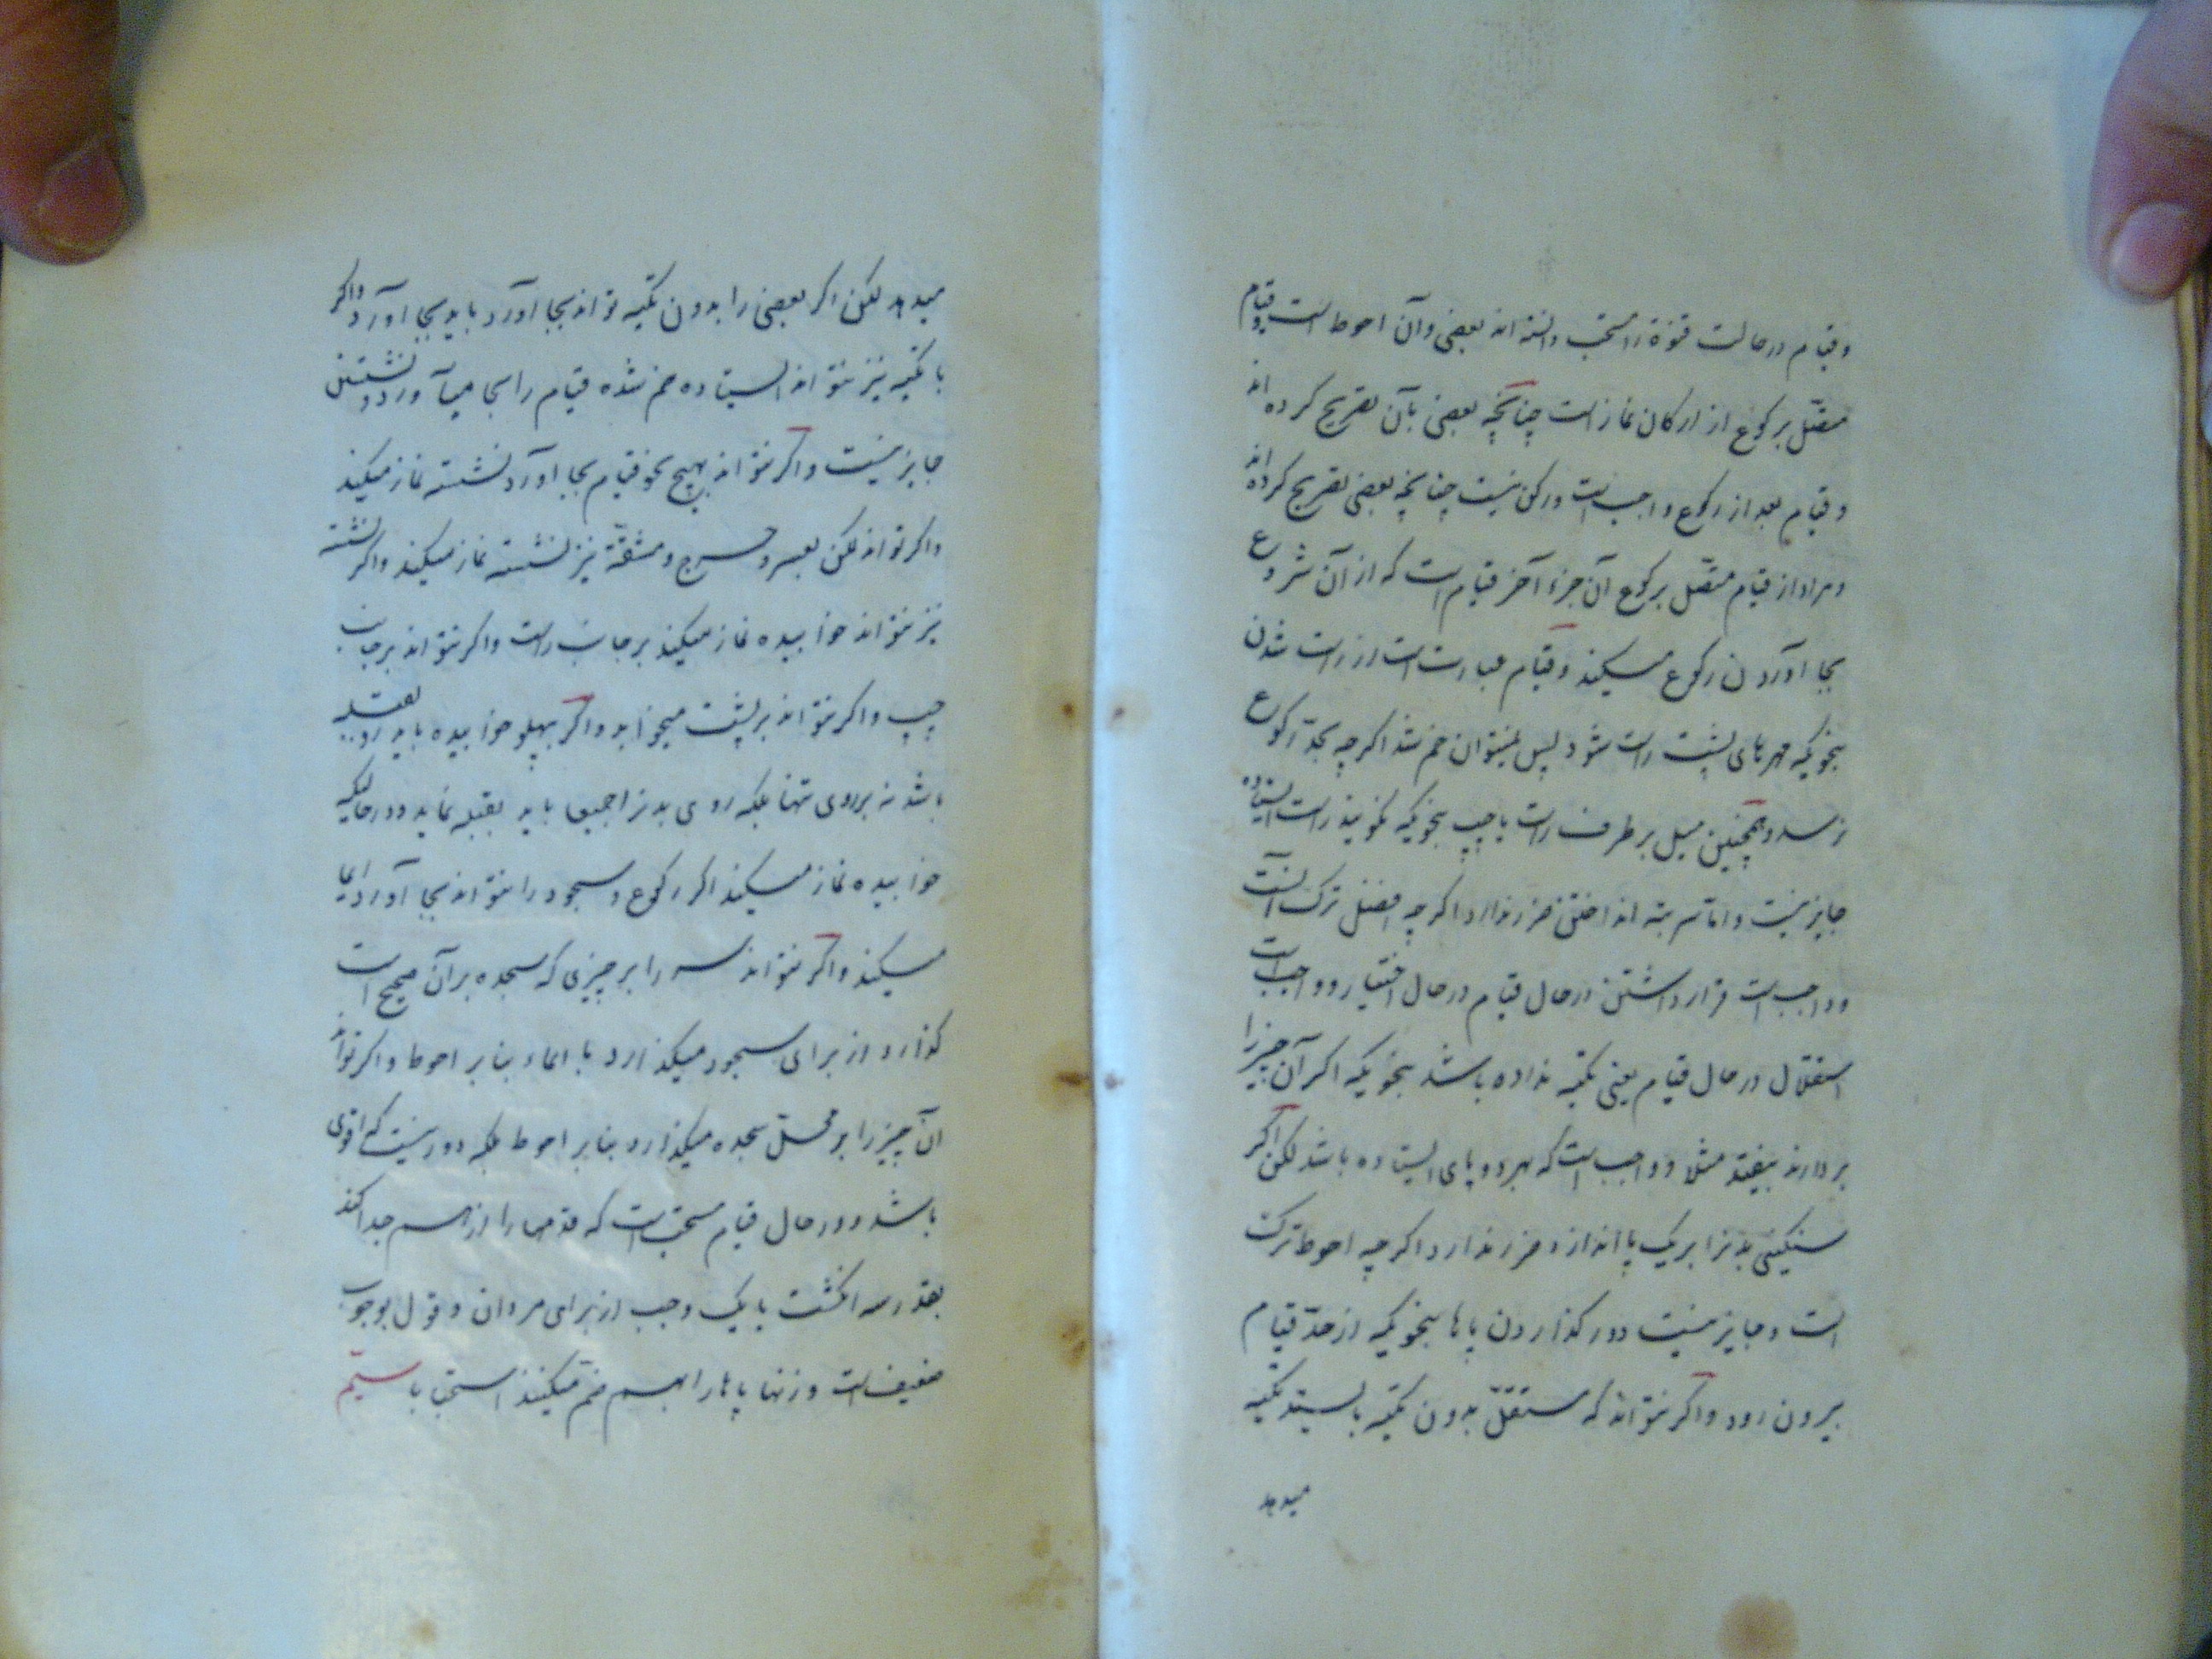 وقیام در حالت قنوة را مستحب دانسته اند بعضی و آن احوط است و قیام
متصل برکوع از ارکان نماز است چنانچه بعضی بآن تصریح کرده اند
و قیام بعد از رکوع واجب است و رکن نیست چنانچه بعضی تصریح کرده اند
و مراد از قیام متصل برکوع آن جزء آخر قیام است که از آن شروع
بجا آوردن رکوع میکند و قیام عبارت است از راست شدن
بنحویکه مهرهای پشت راست شود پس نمیتوان خم شد اگر چه بحد رکوع
نرسد و همچنین میل بر طرف راست یا چپ بنحویکه نگویند راست ایستاده
جایز نیست و اما سر بته انداختن ضرر ندارد اگر چه افضل ترک آنست
و واجب است قرار داشتن در حال قیام در حال اختیار و واجب است
استقلال در حال قیام یعنی تکیه نداده باشد بنحویکه اگر آن چیز را
بردارند بیفتد مثلا و واجب است که بهر دو پای ایستاده باشد لکن اگر
سنگینی بدنرا بر یک پا اندازد ضرر ندارد اگر چه احوط ترک
است و جایز نیست دور گذاردن پاها بنحویکه از حد قیام
بیرون رود و اگر نتواند که مستقل بدون تکیه بایستد تکیه
میدهد
میدهد لکن اگر بعضی را بدون تکیه تواند بجا آورد باید بجا آورد و اگر
با تکیه نیز نتواند ایستاده خم شده قیام را بجا میآورد و نشستن
جایز نیست و اگر نتواند بهیچ نحو قیام بجا آورد نشسته نماز میکند
و اگر تواند لکن بعسر و حرج و مشقة نیز نشسته نماز میکند و اگر نشسته
نیز نتواند خوابیده نماز میکند بر جانب راست و اگر نتواند بر جانب
چپ و اگر نتواند بر پشت میخوابد و اگر بپهلو خوابیده باید رو بقبله
باشد نه بروی تنها بلکه روی بدنرا جمیعا باید بقبله نماید و در حالیکه
خوابیده نماز میکند اگر رکوع و سجود را نتواند بجا آورد ایما
میکند و اگر نتواند سر را بر چیزی که سجده بر آن صحیح است
گذارد از برای سجود میگذارد با ایماء بنا بر احوط و اگر نتواند
آن چیز را بر محل سجده میگذارد بنا بر احوط بلکه دور نیست که اقوی
باشد و در حال قیام مستحب است که قدمها را از هم جدا کند
بقدر سه انگشت یا یک وجب از برای مردان و قول بوجوب
ضعیف است و زنها پاها را بهم ضم میکنند استحبابا سیم